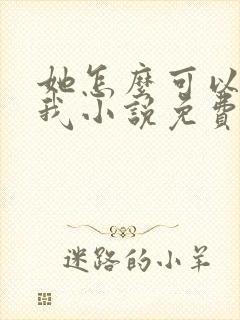 她怎麼可以
我小說免費
迷路的小羊